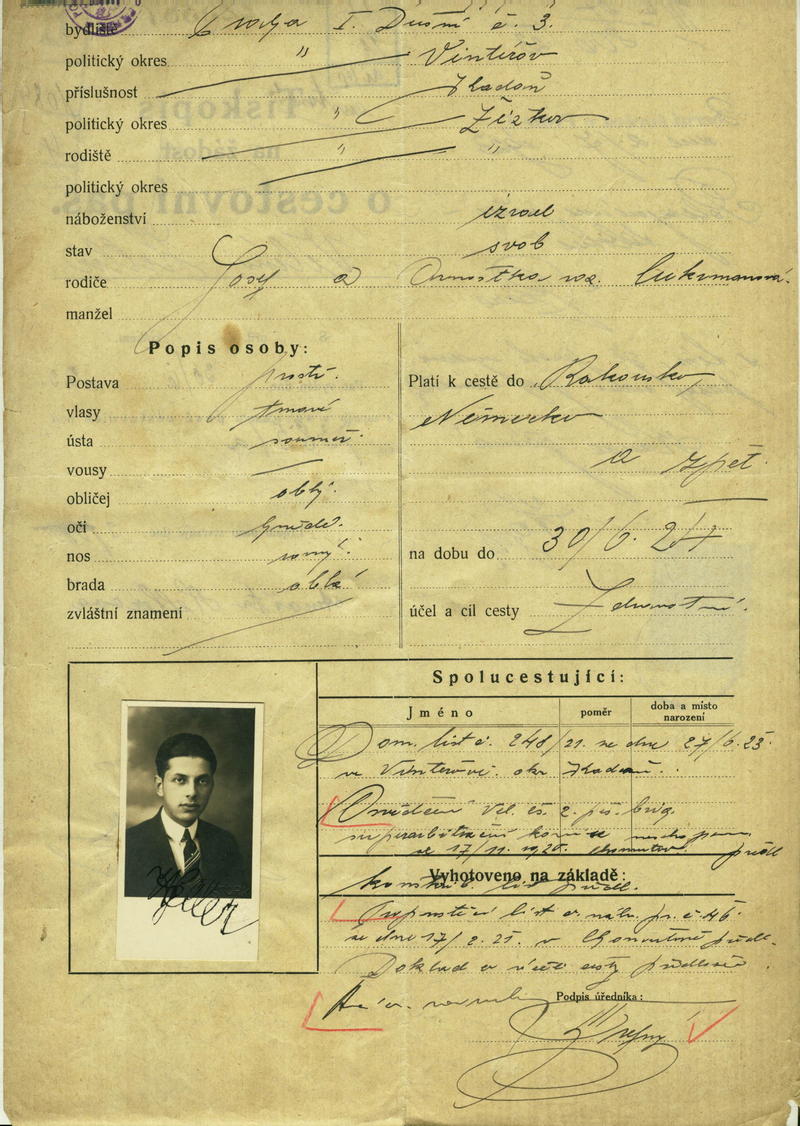 bydliště Praha I. Dušní č. 3.
politický okres " Vintířov
příslušnost Kadaň
politický okres " Žižkov
rodiště " "
politický okres
náboženství izrael
stav svob
rodiče Josef a Arnoštka roz. Cukrmanová
manžel
Popis osoby:
Postava prostř.
vlasy tmavé
ústa souměr.
vousy —
obličej oblý.
oči hnědé.
nos rovný.
brada oblá
zvláštní znamení
Platí k cestě do Rakouska,
Německa
a zpět.
na dobu do 30/6. 24
účel a cíl cesty Zdravotní.
Spolucestující:
Jméno poměr doba a místo narození
Dom. list č. 248/21 ze dne 27/6. 23.
ve Vintířově. okr Kadaň.
Osvědčení Vel. čs. 2. pěš. brig.
superarbitrační komise
ze 17/11. 1920. Chomutov. přidl
Vyhotoveno na základě:
list přidl.
Propustěcí list č. 46.
ze dne 17/2. 21. v Chomutově přidl.
Doklad o účelu cesty přidložen
Podpis úředníka:
Heller